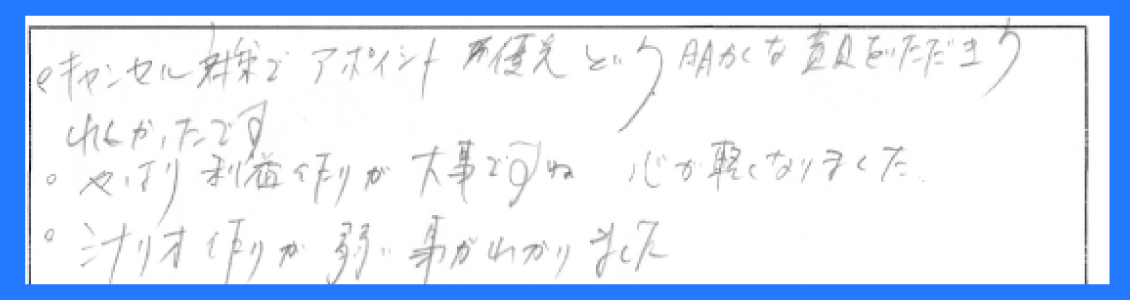 キャンセル対策でアポイント 優先という 明かくな 意見をいただきう
れしかったです
。やはり利益作りが大事ですね 心が軽くなりました.
。シナリオ作りが弱い事がわかりました